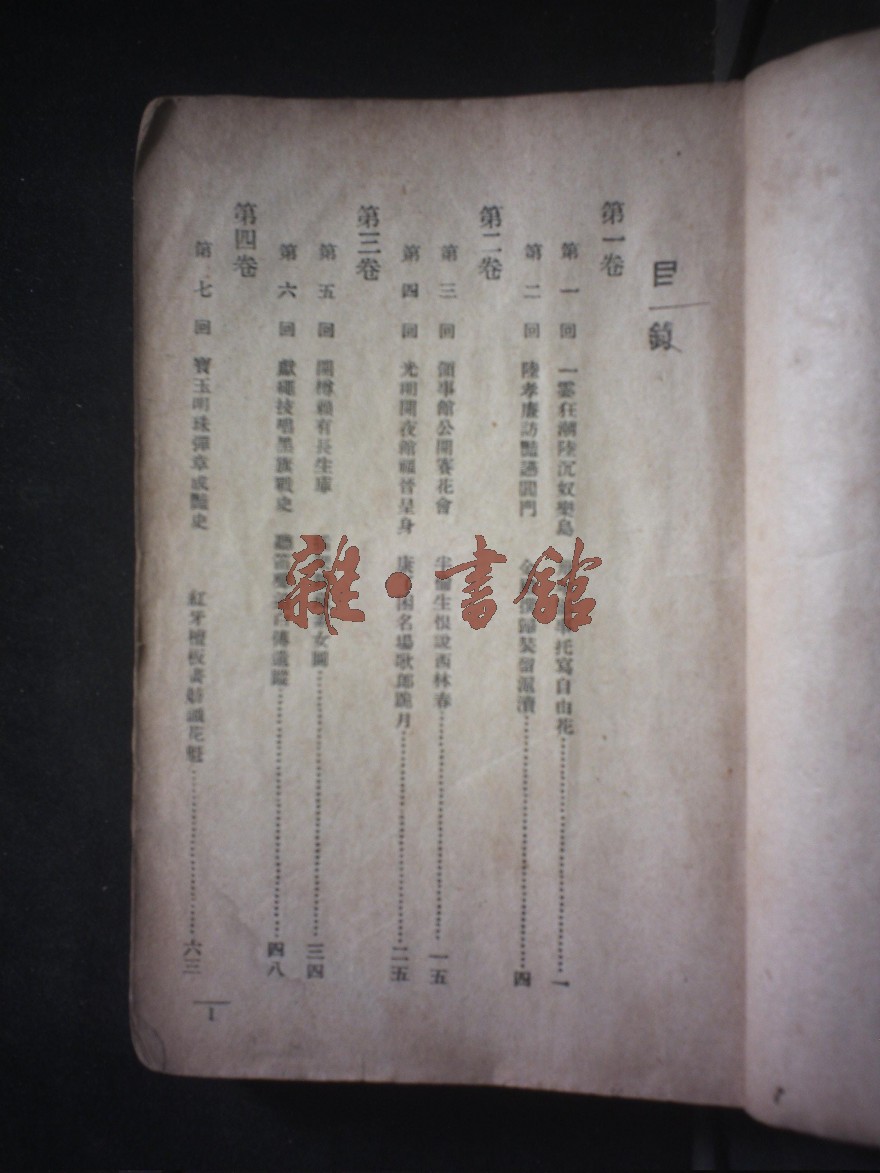 目錄
第一卷
第一回 一霎狂潮陸沉奴樂島 托寫自由花 一
第二回 陸孝廉訪豔讌閶門 留滬瀆 四
第二卷
第三回 領事館公開賽花會 生恨說西林春 一五
第四回 光明開夜館福晉呈身 困名場歌郎跪月 二五
第三卷
第五回 開樽賴有長生庫 女圖 三四
第六回 獻繩技唱黑旗戰史 聽笛 傳遺蹤 四八
第四卷
第七回 寶玉明珠彈章成豔史 紅牙檀板畫舫識花魁 六三
1
雜·書館